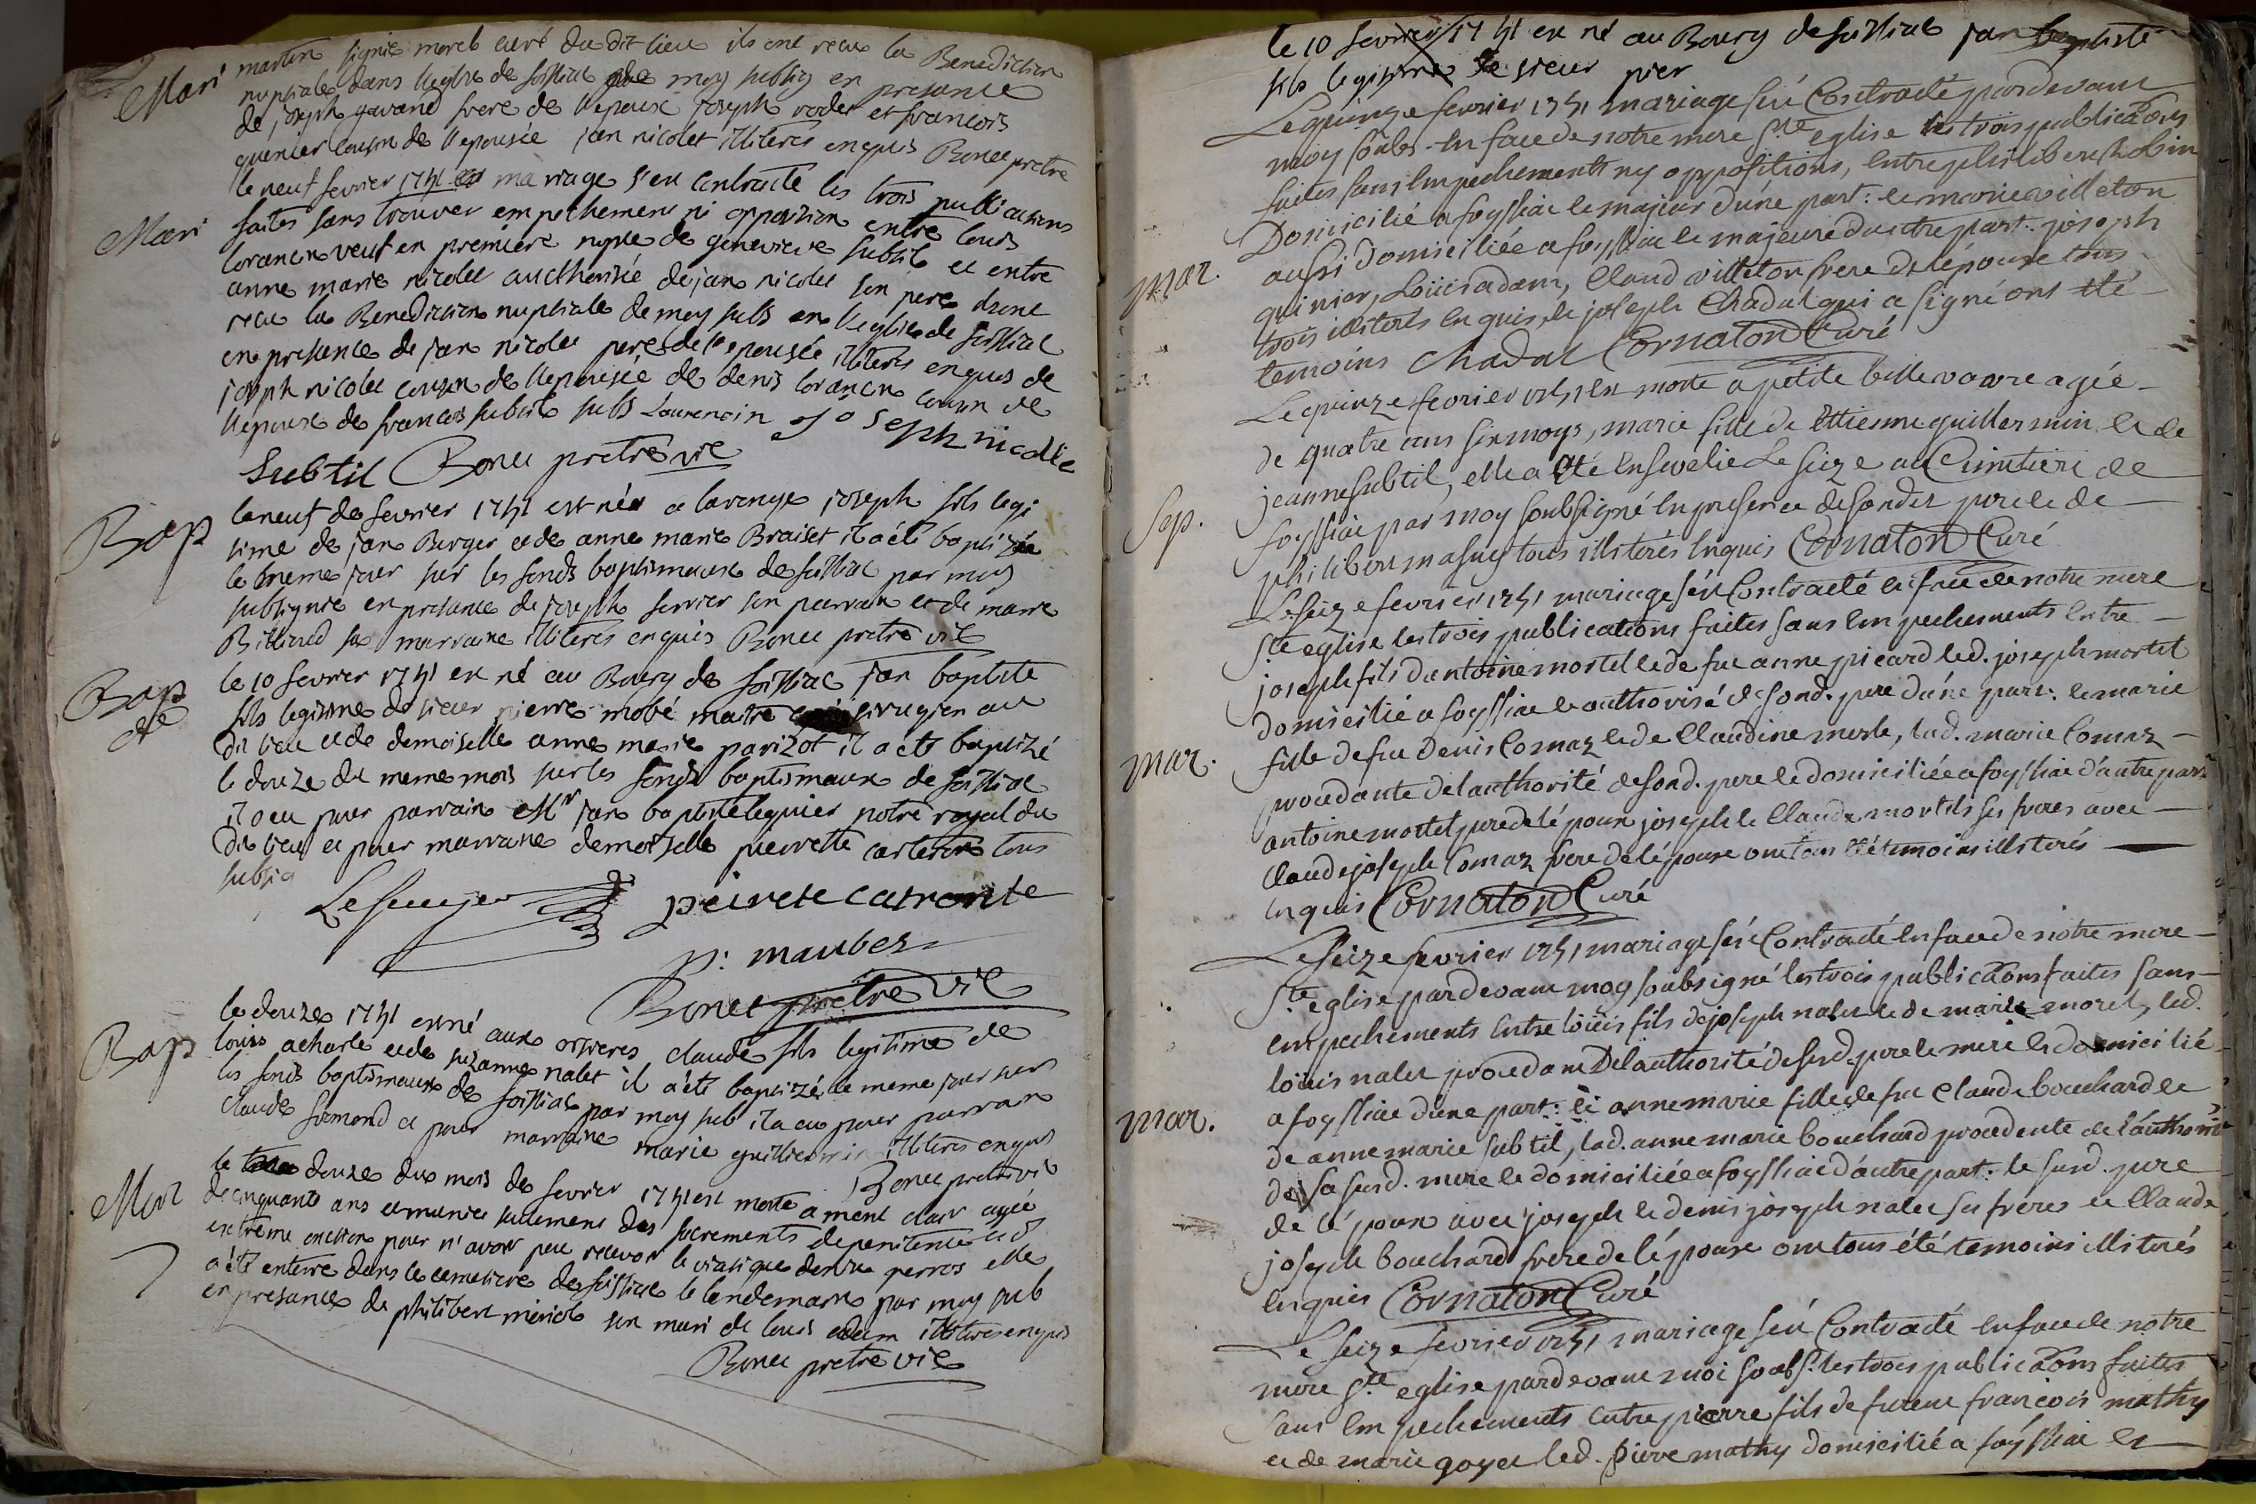 Mari
martin signé morel curé du dit lieu ils ont recu la Benediction
nuptiale dans l'eglise de foissiat de moy subsig en presance
de joseph gavand frere de l'epoux joseph rodet et francois
quenier cousin de l'epousée jan nicolet illiterés enquis Bonet pretre
Mari
le neuf fevrier 1741 mariage s'est contracté les trois publications
faites sans trouver empechement ni opposition entre louis
lorancin veuf en premiere nopse de genevieve subtil et entre
anne marie nicolet authorisée de jan nicolet son pere ils ont
recu la Benediction nuptiale de moy subs en l'eglise de foissiat
en presance de jan nicolet pere de l'epousée illiterés enquis de
joseph nicolet cousin de l'epousée de denis lorancin cousin de
l'epoux de francois subtil subs Laurencin joseph nicolle
Subtil Bonet pretre vic
Bap
le neuf de fevrier 1741 est né a lavange joseph fils legi
time de jan Burger et de anne marie Braiset il a été baptizé
le meme jour sur les fonds baptismaux de foissiat par moy
subsigné en presance de joseph servier son parrain et de marie
Billioud sa marraine illiterés enquis Bonet pretre vic
Bap
de
le 10 fevrier 1741 est né au Bourg de foissiat jan baptiste
fils legitime de sieur pierre mobé maitre cirugien au
dit lieu et de demoiselle anne marie parizot il a été baptizé
le douze du meme mois sur les fonds baptismaux de foissiat
il a eu pour parrain Mr jan baptiste leguier notre royal du
dit lieu et pour marraine demoiselle pierrette carteron tous
subsig
peirete catronte
p. maubez
Bonet pretre vic
Bap
le douze 1741 est né aux orfveres claude fils legitime de
louis acharle et de suzanne nalet il a été baptizé le meme jour sur
les fonds baptismaux de foissiat par moy sub il a eu pour parrain
claude simond et pour marraine marie guillermin illiterés enquis
Bonet pretre vic
Mort
le douze du mois de fevrier 1741 est morte a ment clair agée
de cinquante ans et munie seulement des sacrements de penitence et d
extreme onction pour n'avoir peu recevoir le viatique perros elle
a été enterre dans le cemetiere de foissiat le lendemain par moy sub
en presance de philibert meriele son mari de louis adam illiterés enquis
Bonet pretre vic
le 10 fevrier 1741 est né au Bourg de foissiat jan baptiste
fils legitime de sieur pier
Mar.
Le quinze fevrier 1741 mariage s'est Contracté pardevant
moy soubs. en face de notre mere Ste eglise les trois publications
faites sans empechements ny oppositions, entre philibert Robin
Domicilié a foyssiac le majeur d'une part: et marie villeton
aussi domiciliée a foyssiac et majeure d'autre part. joseph
quinier, Loüis adam, Claud villeton frere de l'épouse tous
trois illiterés enquis, et joseph Chadal qui a signé ont été
temoins Chadal Cornaton Curé
Sep.
Le quinze fevrier 1741 est morte a petite bellevavre agée
de quatre ans six moys, marie fille de Ettienne guillermin et de
jeanne subtil, elle a été ensevelie Le seize au Cimitiere de
foyssiac par moy soubsigné en presence de sondit pere et de
philibert masuy tous illiterés enquis Cornaton Curé
Mar.
Le seize fevrier 1741 mariage s'est Contracté en face de notre mere
Ste eglise les trois publications faites sans empechements entre
joseph fils d'antoine mortel et de fue anne picard led. joseph mortel
domicilié a foyssiac et authorisé de sond. pere d'une part: et marie
fille de fue Denis Comaz et de Claudine merle, lad. marie Comaz
procedante de l'authorité de sond. pere et domiciliée a foyssiac d'autre part
antoine mortel pere de l'époux joseph et Claude mortels ses freres avec
Claude joseph Comaz frere de l'épouse ont tous été temoins illiterés
enquis Cornaton Curé
Mar.
Le seize fevrier 1741 mariage s'est Contracté en face de notre mere
Ste eglise pardevant moy soubsigné les trois publications faites sans
empechements entre loüis fils de joseph nalet et de marie morel, led.
loüis nalet procedant De l'authorité de sesd. pere et mere et domicilié
a foyssiac d'une part: et anne marie fille de fue Claude bouchard et
de anne marie subtil, lad. anne marie bouchard procedente de l'authorité
de sa susd. mere et domiciliée a foyssiac d'autre part: le susd. pere
de l'époux avec joseph et denis joseph nalet ses freres et Claude
joseph bouchard frere de l'épouse ont tous été temoins illiterés
enquis Cornaton Curé
Le seize fevrier 1741 mariage s'est Contracté en face de notre
mere Ste eglise pardevant moi soubs. les trois publications faites
sans empechements entre pierre fils de futeur francois mathy
et de marie goyet led. pierre mathy domicilié a foyssiac et